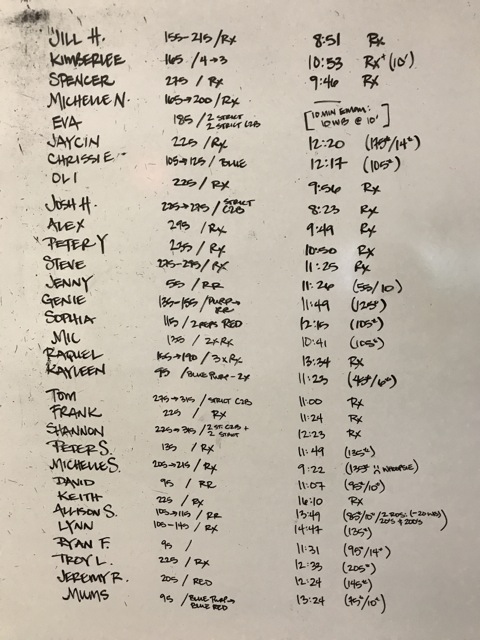 JILL H. 155-215/RX 8:51 RX
KIMBERLEE 165 /4→3 10:53 RX+ (10')
SPENCER 275 / RX 9:46 RX
MICHELLE N. 165→200/RX — [10 MIN EMOM:
EVA 185 /2 STRICT 10 WB @ 10']
2 STRICT C2B
JAYCIN 225 / RX 12:20 (175#/14#)
CHRISSIE 105→125 / BLUE 12:17 (105#)
OLI 225 / RX 9:56 RX
JOSH H. 225→275 / STRICT C2B 8:23 RX
ALEX 295 / RX 9:49 RX
PETER Y 235 / RX 10:50 RX
STEVE 275-295/RX 11:25 RX
JENNY 55 / RR 11:26 (55/10)
GENIE 135-155 /PURP→ RR 11:49 (125#)
SOPHIA 115 / RED 12:15 (105#)
MIC 135 / 2xRX 10:41 (105#)
RAQUEL 165→190 / 3xRX 13:34 RX
KAYLEEN 95 /BLUE PURP-2x 11:23 (45#/6#)
TOM 275→315 /STRICT C2B 11:00 RX
FRANK 225 / RX 11:24 RX
SHANNON 225→315 /2 ST. C2B + 2 STRICT 12:23 RX
PETER S. 135 / RX 11:49 (135#)
MICHELLE S. 205→215 / RX 9:22 (135# WHOOPSIE)
DAVID 95 / RR 11:07 (95#/10#)
KEITH 225 / RX 16:10 RX
ALLISON S. 105→115 / RR 13:49 (85#/10#/2 RDS! (-20 WB) 20'S & 200'S)
LYNN 105-145 / RX 14:47 (135#)
RYAN F. 95 / 11:31 (95#/14#)
TROY L. 225 / RX 12:33 (205#)
JEREMY R. 205 / RED 12:24 (145#)
MUMS 95 /BLUE PURP→ BLUE RED 13:24 (75#/10#)